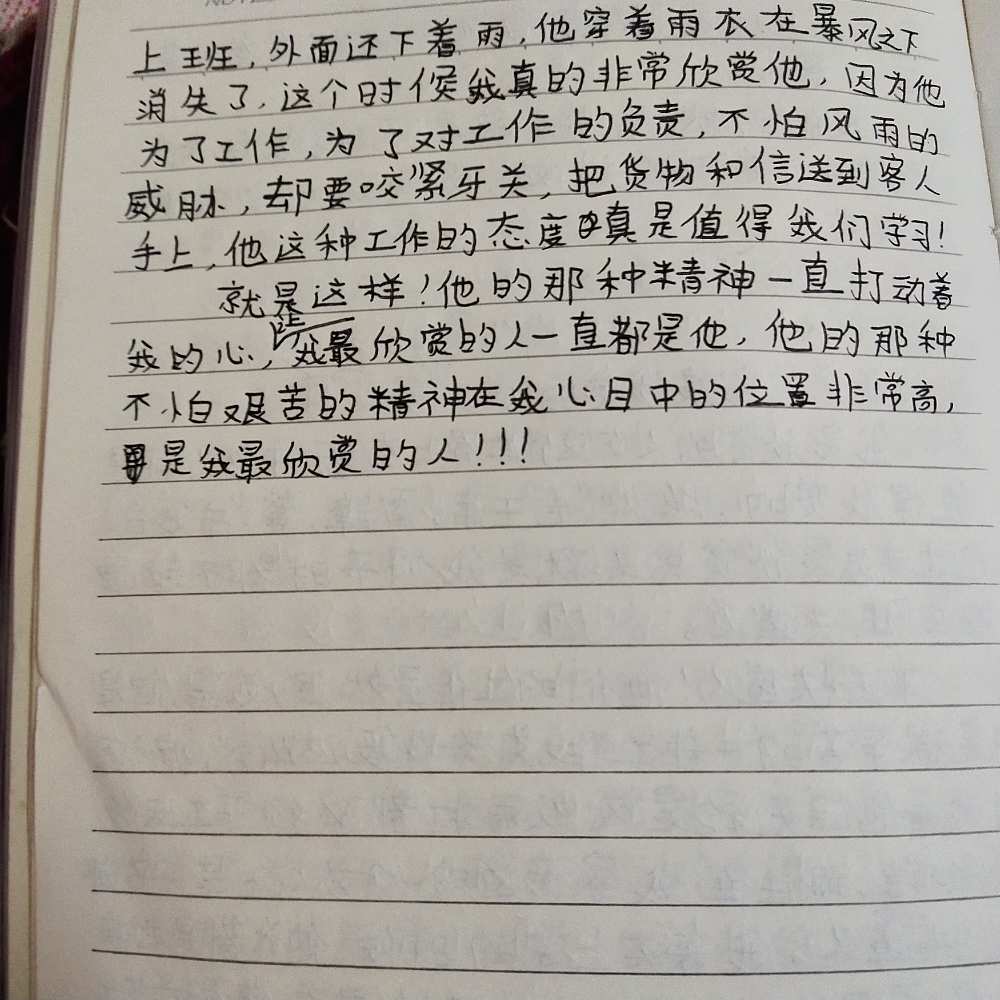 上班,外面还下着雨,他穿着雨衣在暴风之下
消失了,这个时候我真的非常欣赏他,因为他
为了工作,为了对工作的负责,不怕风雨的
威胁,却要咬紧牙关,把货物和信送到客人
手上,他这种工作的态度真是值得我们学习!
就是这样!他的那种精神一直打动着
我的心,我最欣赏的人一直都是他,他的那种
不怕艰苦的精神在我心目中的位置非常高,
是我最欣赏的人!!!